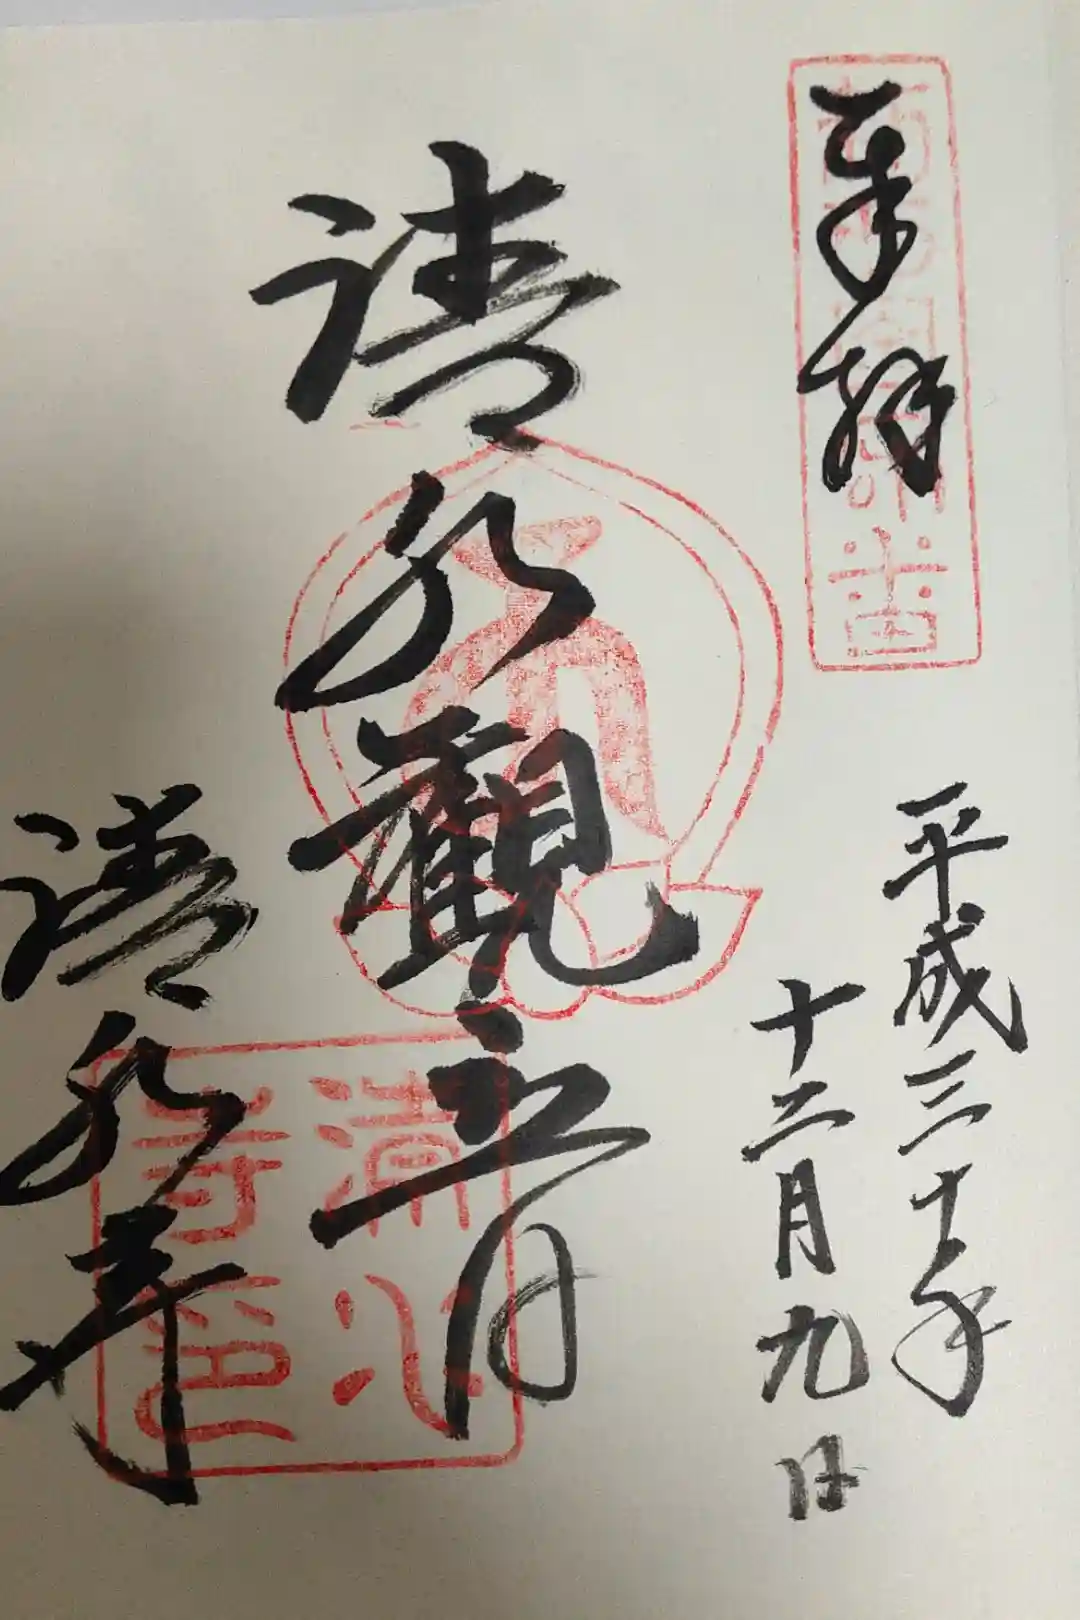 奉拝
平成三十年
十二月九日
清水觀音
清水寺
清水
寺印